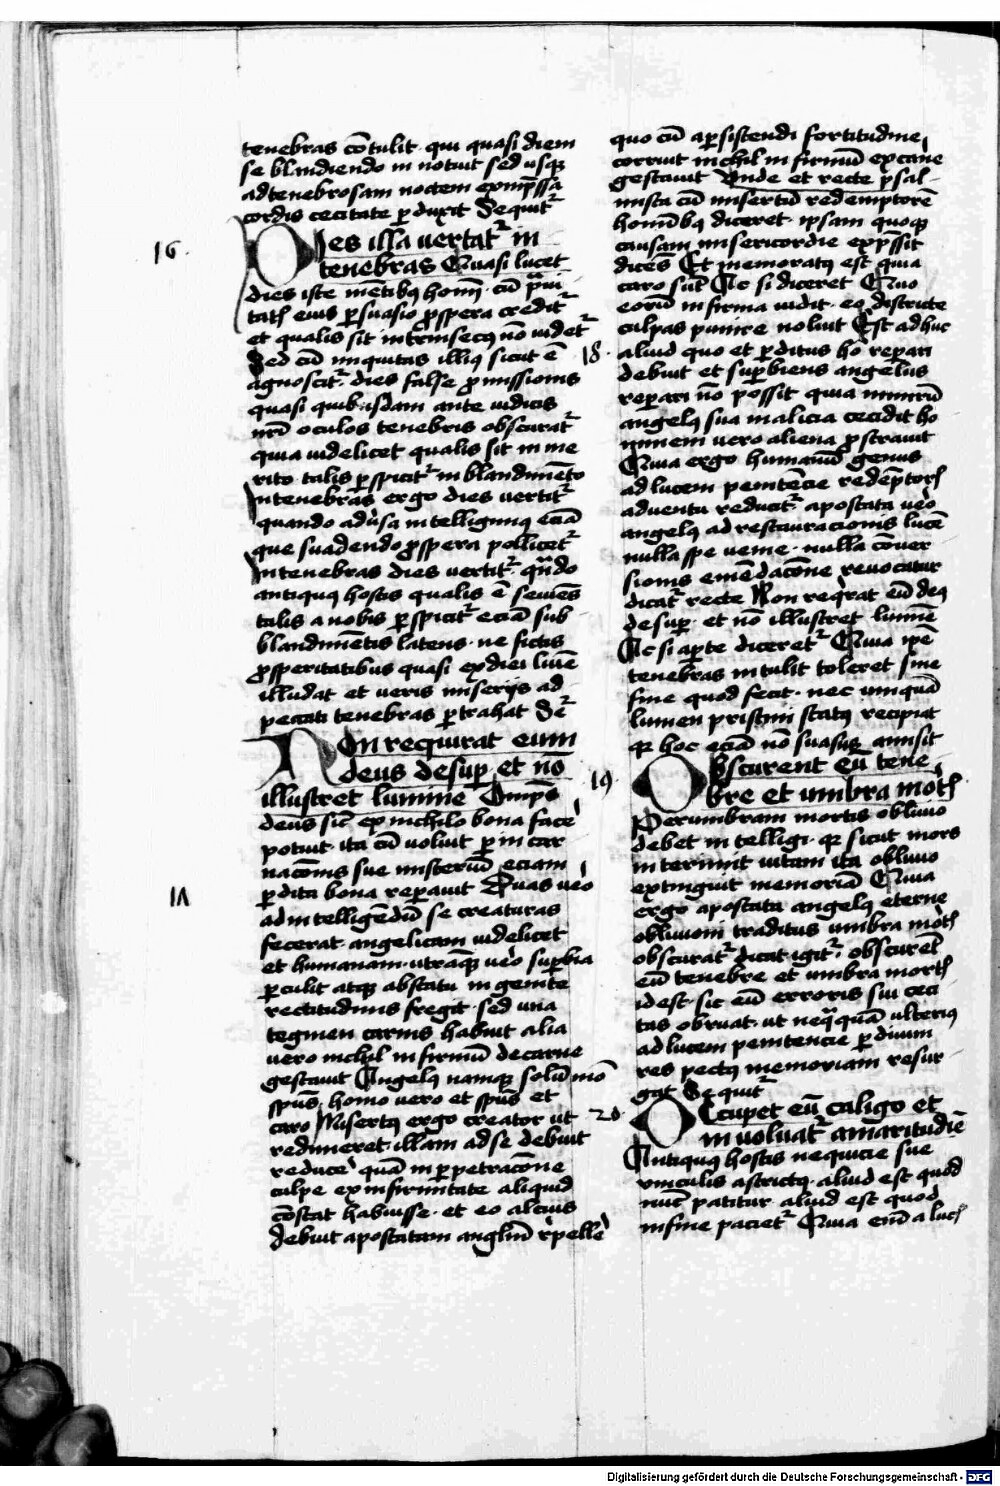 tenebras cōtulit · qui quasi diem
se blandiendo in notuit sed usqꝫ
ad tenebrosam noctem exp̄ssa
cordis cecitate ꝑduxit Sequit᷑
16.
Dies illa vertat᷑ in
tenebras Quasi lucet
dies iste mētibꝫ hoīm · cū p̄ui
tatꝭ eius ꝑsuasio ꝓspera credit᷑
et qualis sit intrinsecꝰ nō uidet᷑
Sed cū iniquitas illiꝰ sicut ē
agnoscit᷑ · dies false ꝓmissionis
quasi quibusdam ante iudicis
nr̄i oculos tenebris obscurat᷑
quia uidelicet qualis sit in me
rito talis ꝑspicit᷑ in blandimēto
In tenebras ergo dies vertit᷑
quando aduersa intelligimꝰ eciā
que suadendo ꝓspera pollicet᷑
In tenebras dies vertit᷑ · qn̄do
antiquꝰ hostis qualis ē seuiēs
talis a nobis ꝑspicit᷑ eciā sub
blandimētis latens · ne fictis
ꝓsperitatibus quasi ex diei lumē
illudat et ueris miserijs ad
peccati tenebras ꝑtrahat Se᷑
Non requirat eum
deus desuꝑ et nō
illustret lumine Omīps
deus sic̄ ex nichilo bona face᷑
potuit · ita cū uoluit ꝑ in car
nacōnis sue misteriū eciam
17
ꝑdita bona reparauit Duas ūo
ad intelligēdū se creaturas
fecerat · angelicam uidelicet
et humanam · utramqꝫ ūo suꝑbia
ꝑculit atqꝫ abstatu ingenite
rectitudinis fregit · sed una
tegmen carnis habuit alia
uero nichil infirmū de carne
gestauit Angelꝰ namqꝫ solūmō
spūs, homo uero et spūs et
caro Misertꝰ ergo creator ut
redimeret · illam ad se debuit
reduce᷑ quā in ꝑpetracōne
culpe ex infirmitate aliquid
cōstat habuisse · et eo alcius
debuit apostatam angelū repelle᷑
quo cū a ꝑsistendi fortitudine
corruit nichil infirmū ex carne
gestauit Unde et recte psal-
mista cū misertū redemptorē
hominibꝫ diceret · ipsam quoqꝫ
causam misericordie exp̄ssit
dicēs Et memoratꝰ est quia
caro sūt Ac si diceret Quo
eorū infirma uidit · eo districte
culpas punire noluit Est adhuc
18.
aliud quo et ꝑditus hō repari
debuit et suꝑbiens angelus
repari nō possit quia nimirū
angelꝰ sua malicia cecidit ho
minem uero aliena ꝓstrauit
Quia ergo humanū genus
ad lucem penitēcie redēptorꝭ
aduentu reducit᷑ apostata ūo
angelꝰ ad restauracionis lucē
nulla spe uenie · nulla cōuer
sionis emēdacōne reuocatur
dicat᷑ recte Non reqͥrat eū deꝰ
desuꝑ · et nō illustret lumē
Ac si aꝑte diceret᷑ Quia ip̄e
tenebras intulit toleret sine
fine quod fecit · nec umquā
lumen pristini statꝰ recipiat
qꝛ hoc eciā nō suasus amisit
19
Obscurent eū tene
bre et umbra mortꝭ
Per umbram mortis obliuio
debet intelligi · qꝛ sicut mors
interimit uitam ita obliuio
extinguit memoriā Quia
ergo apostata angelꝰ eterne
obliuioni traditus umbra mortꝭ
obscurat᷑ dicat᷑ igit᷑ · obscurēt
eū tenebre et umbra mortꝭ
id est · sic eū erroris sui ceci
tas obruat · ut neqͣquā ulteriꝰ
ad lucem penitencie ꝑ diuini
respectꝰ memoriam resur
gat Sequit᷑
20
Occupet eū caligo et
inuoluat᷑ amaritudīe
Antiquꝰ hostis nequicie sue
vinculis astrictꝰ · aliud est quod
nūc patitur · aliud est quod
in fine paciet᷑ Quia enī a lucꝭ
Digitalisierung gefördert durch die Deutsche Forschungsgemeinschaft - DFG